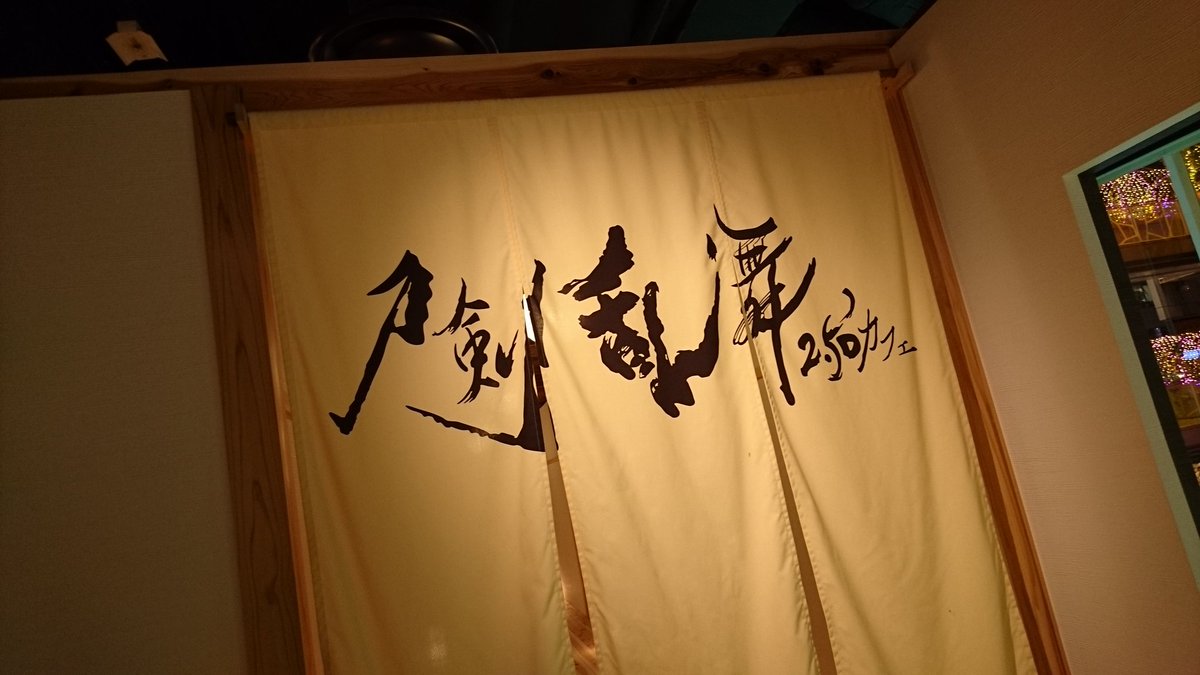 刀剣乱舞2.5Dカフェ